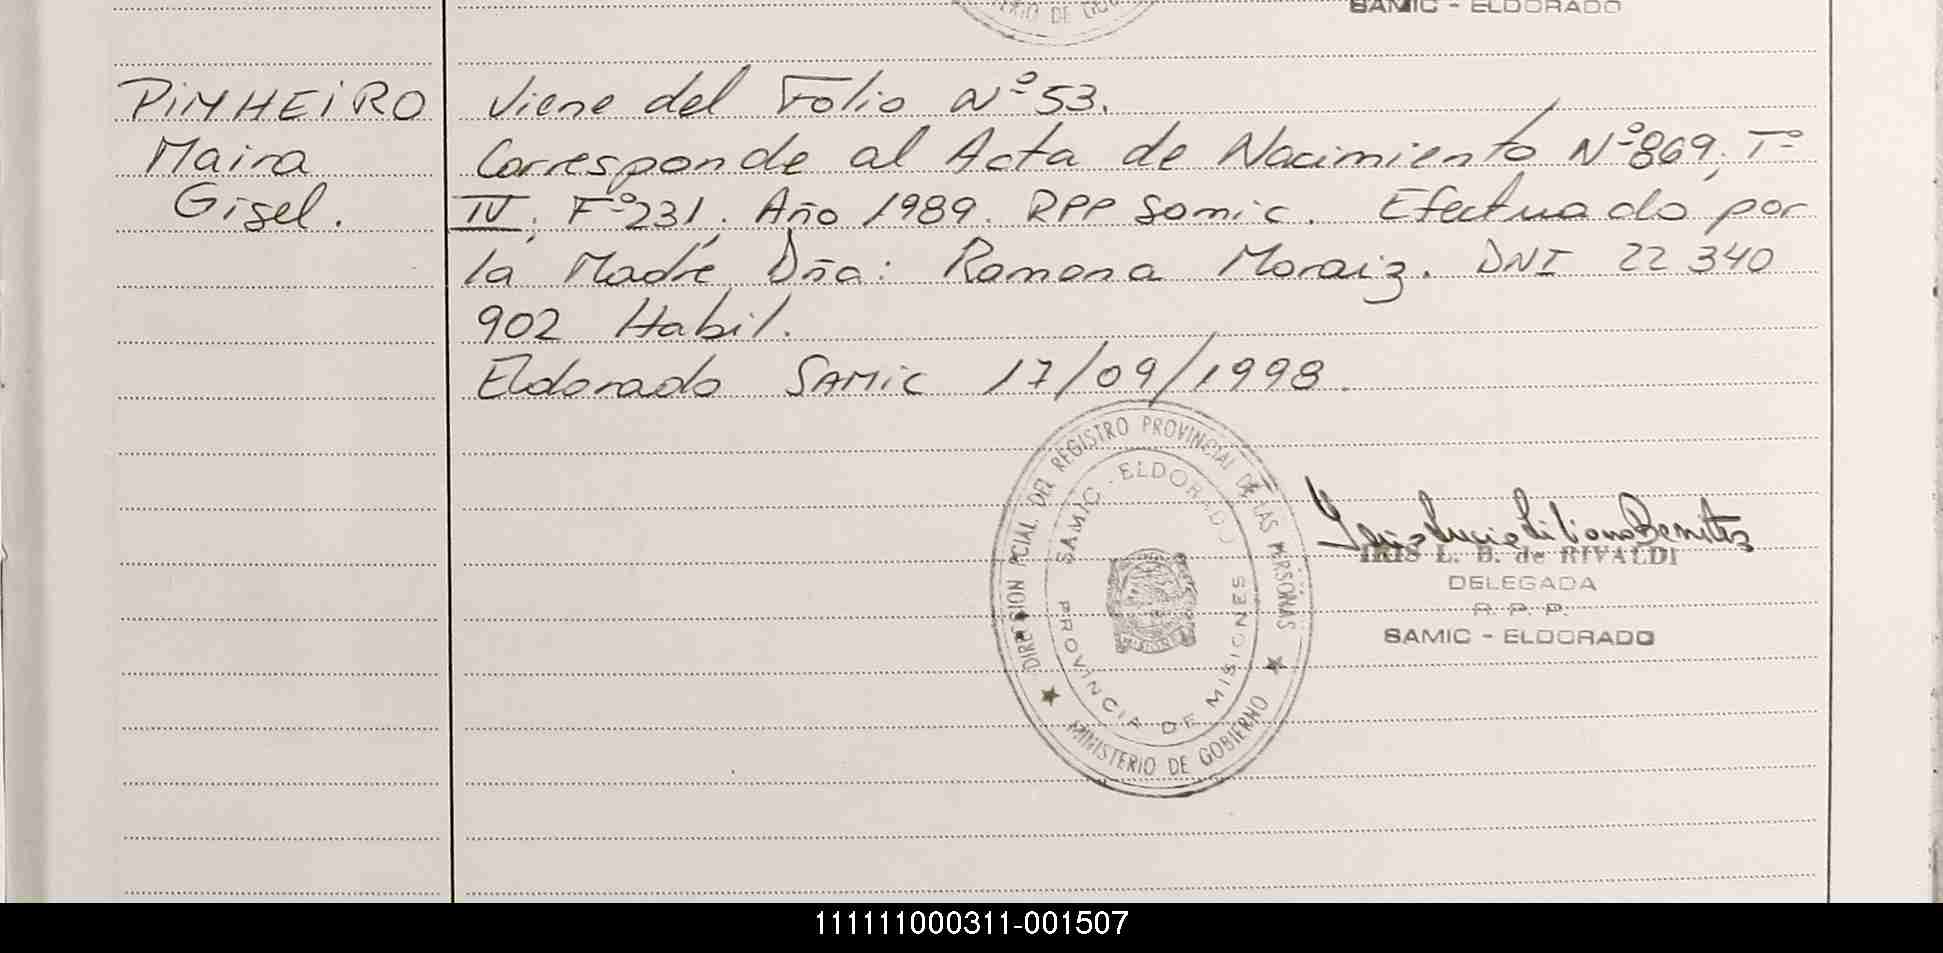 SAMIC - ELDORADO
PiNHEiRO
Maira
Gisel.
Viene del Folio Nº 53.
Corresponde al Acta de Nacimiento Nº 869; Tº
IV; Fº 231; Año 1989. RPP Samic. Efectuado por
la Madre Dña: Ramona Moraiz. DNI 22 340
902 Habil.
Eldorado SAMic 17/09/1998.
DIRECCION PCIAL. DEL REGISTRO PROVINCIAL DE LAS PERSONAS
SAMIC - ELDORADO
PROVINCIA DE MISIONES
MINISTERIO DE GOBIERNO
IRIS L. B. de RIVALDI
DELEGADA
R. P. P.
SAMIC - ELDORADO
111111000311-001507